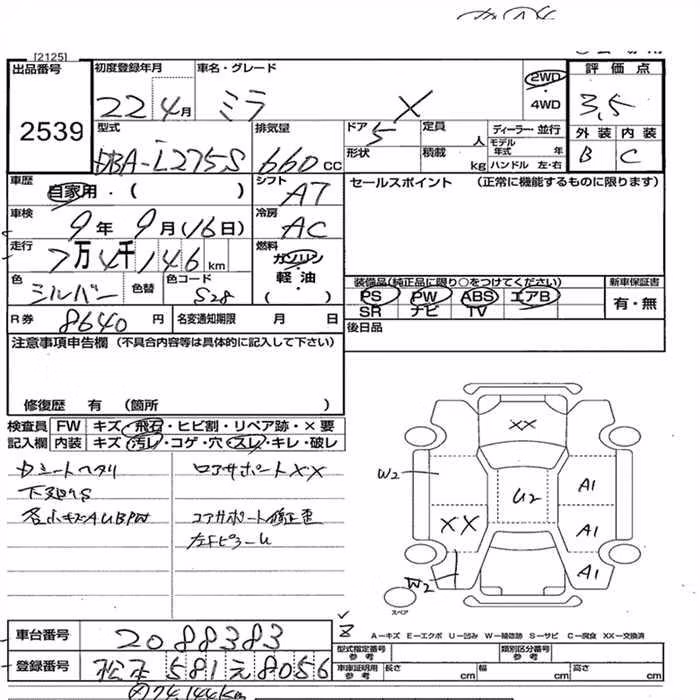 [2125]
出品番号
2539
初度登録年月
22 4月
車名・グレード
ミラ X
2WD
・
4WD
評価点
3,5
外装 内装
B C
型式
DBA-L275S
排気量
660 CC
ドア 5
形状
定員 人
積載 kg
ディーラー・並行
モデル年式 年
ハンドル 左・右
車歴
自家用・( )
シフト
AT
セールスポイント (正常に機能するものに限ります)
車検
9年 9月(16日)
冷房
AC
走行
7万4千146km
燃料
ガソリン
軽油
( )
色
シルバー
色替
色コード
S28
装備品(純正品に限り○をつけてください)
PS PW ABS エアB
SR ナビ TV
新車保証書
有・無
R券 8640 円
名変通知期限 月 日
後日品
注意事項申告欄 (不具合内容等は具体的に記入して下さい)
修復歴 有 (箇所 )
検査員 FW キズ・飛石・ヒビ割・リペア跡・×要
記入欄 内装 キズ・汚レ・コゲ・穴・スレ・キレ・破レ
下廻りS
各小キズAUBP凹
コアサポートXX
コアサポート修正歪
左FピラーU
XX
W2
U2
A1
XX
A1
A1
W2
スペア
A-キズ E-エクボ U-凹み W-補修跡 S-サビ C-腐食 XX-交換済
車台番号
2088383
登録番号
松本 581 え 8056
型式指定番号
類別区分番号
車庫証明用参考
長さ cm
幅 cm
高さ cm
74144km